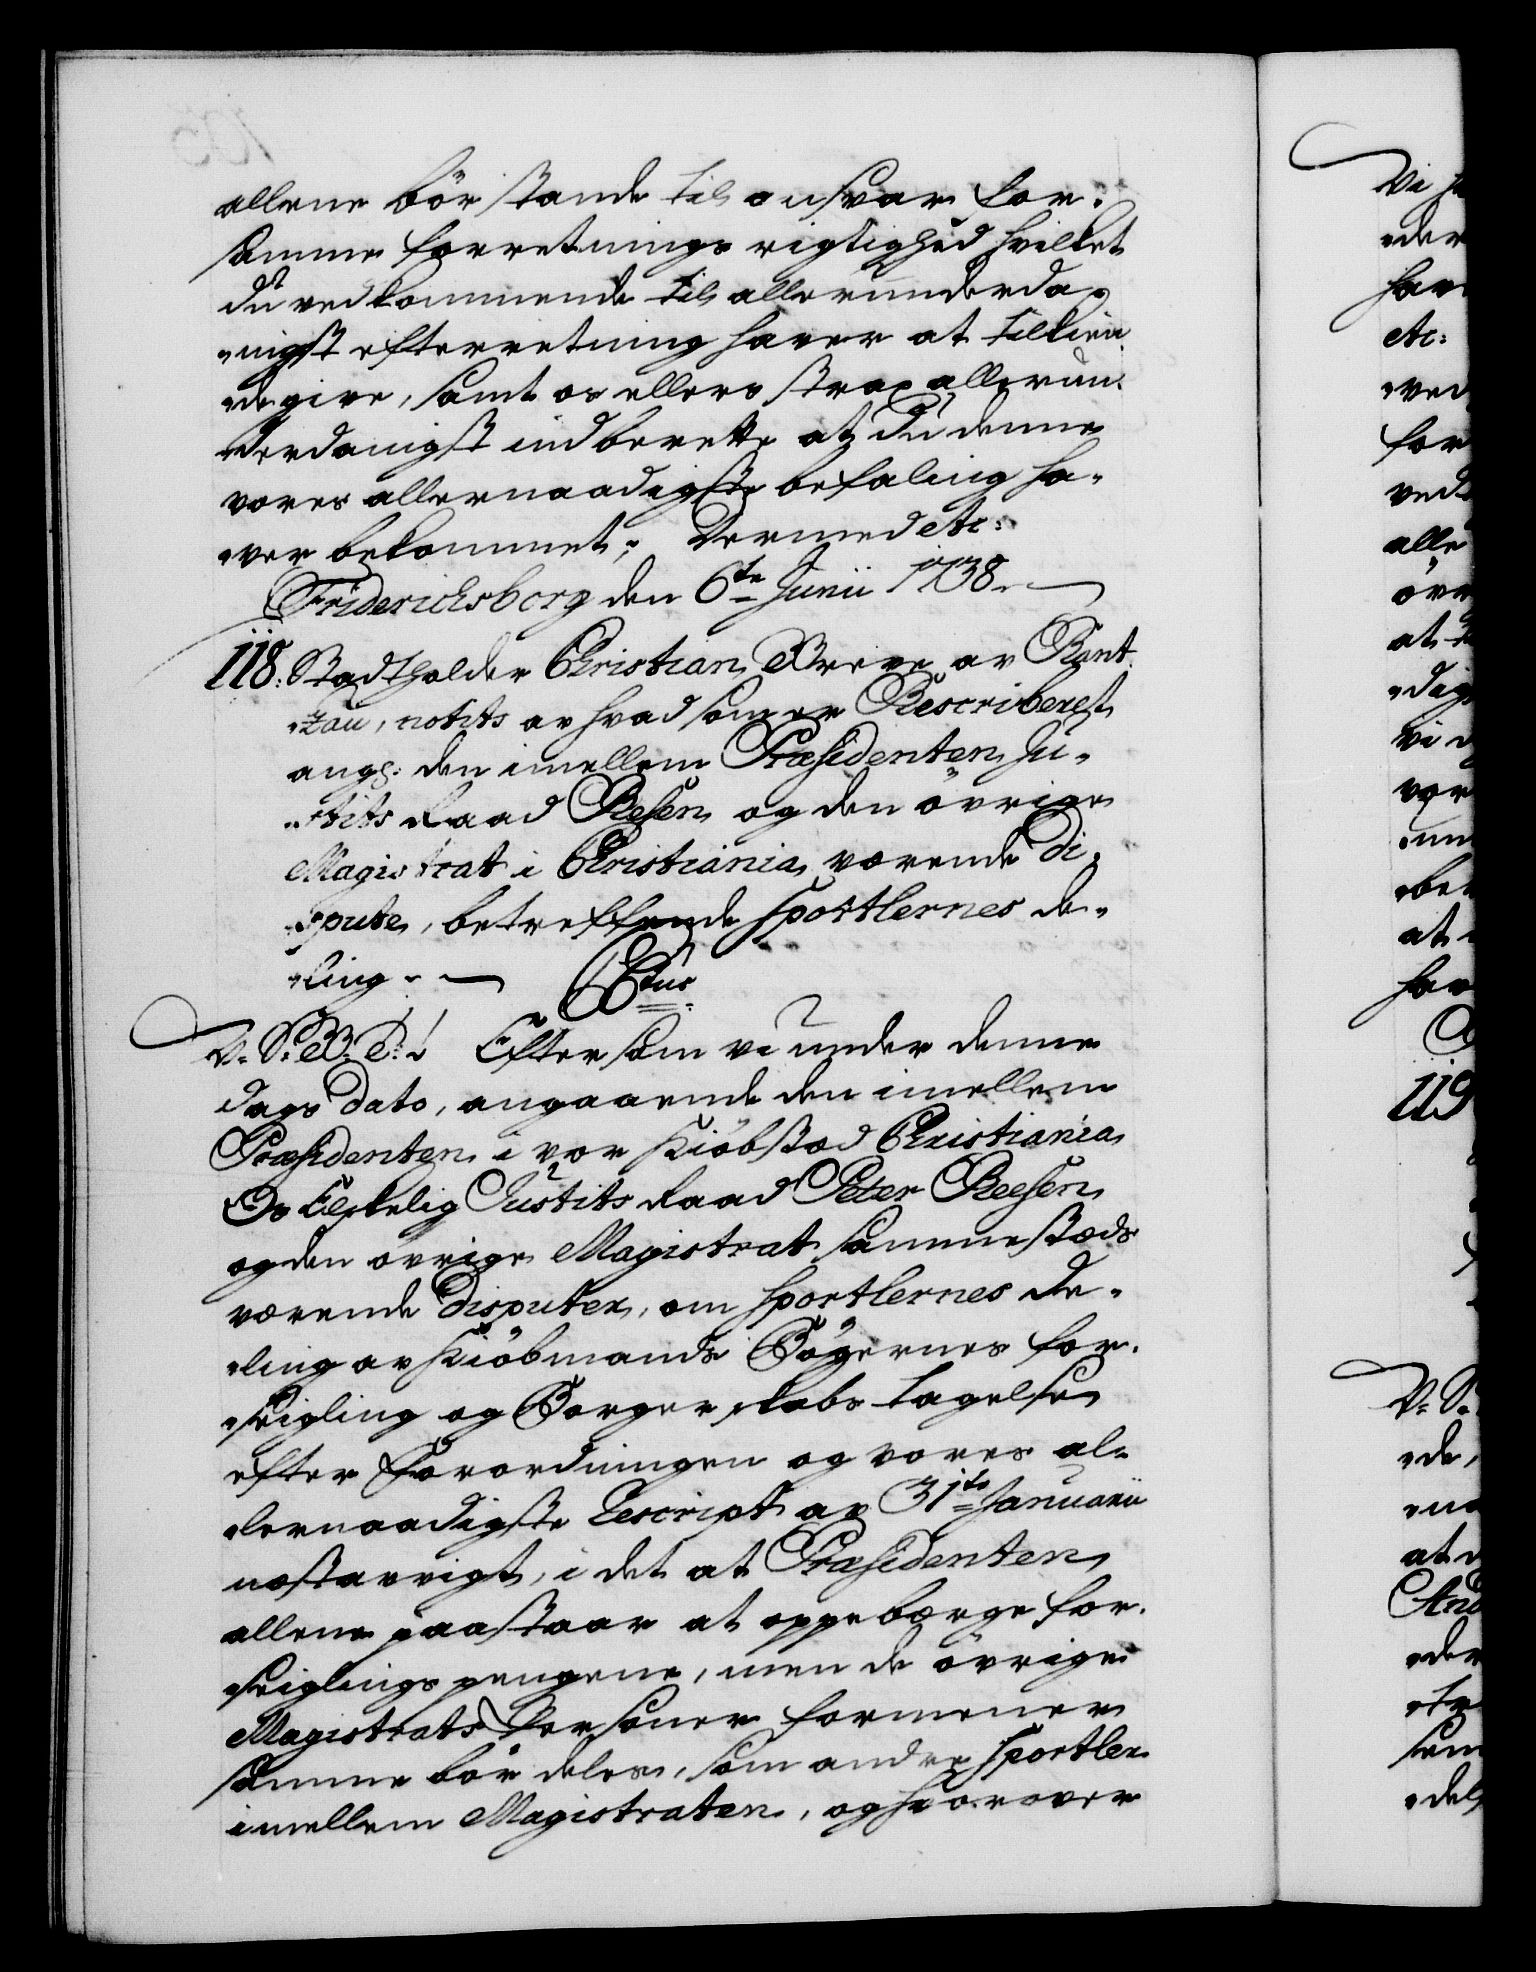 allene bör stande til ansvar for
samme forretnings rigtighed hvilket
du vedkommende til allerunderda-
nigst efterretning haver at tilkien
degive, samt os ellers strax allerun-
derdanigst indberette at du denne
vores allernaadigste befaling ha-
ver bekommet; Dermed etc:
Friderichsborg den 6te Junii 1738.
118. Stadtholder Christian Greve av Rant
zau, notits av hvad som er Rescriberet
angl: den imellem Præsidenten Ju-
stits Raad Resen og den övrige
Magistrat i Christiania værende Di-
spute, betreffende Sportlernes de-
ling. Ctus
V. S. G. T.! Eftersom vi under denne
dags Dato, angaaende den imellem
Præsidenten i vor Kiöbstæd Christiania
Os Elskelig Justits Raad Peter Reesen
og den övrige Magistrat sammestæds
værende Disputer, om Sportlernes de-
ling av Kiöbmands Bögernes for-
seigling og Borgerskabs tagelse
efter Forordningen og vores al-
lernaadigste Rescript av 31te Januarii
næstavvigt, i det at Præsidenten
allene paastaar at oppebærge for-
seiglings pengene, men de övrige
Magistrats Persöner formener
samme bör deles, som andre Sportler
imellem Magistraten, og hvorover
Vi
der
hav
etc:
ved
for
ved
alle
övr
at
dig
vi
vor
un
be
at
hav
119
V. S.
de,
at
And
der
tr
sem
del